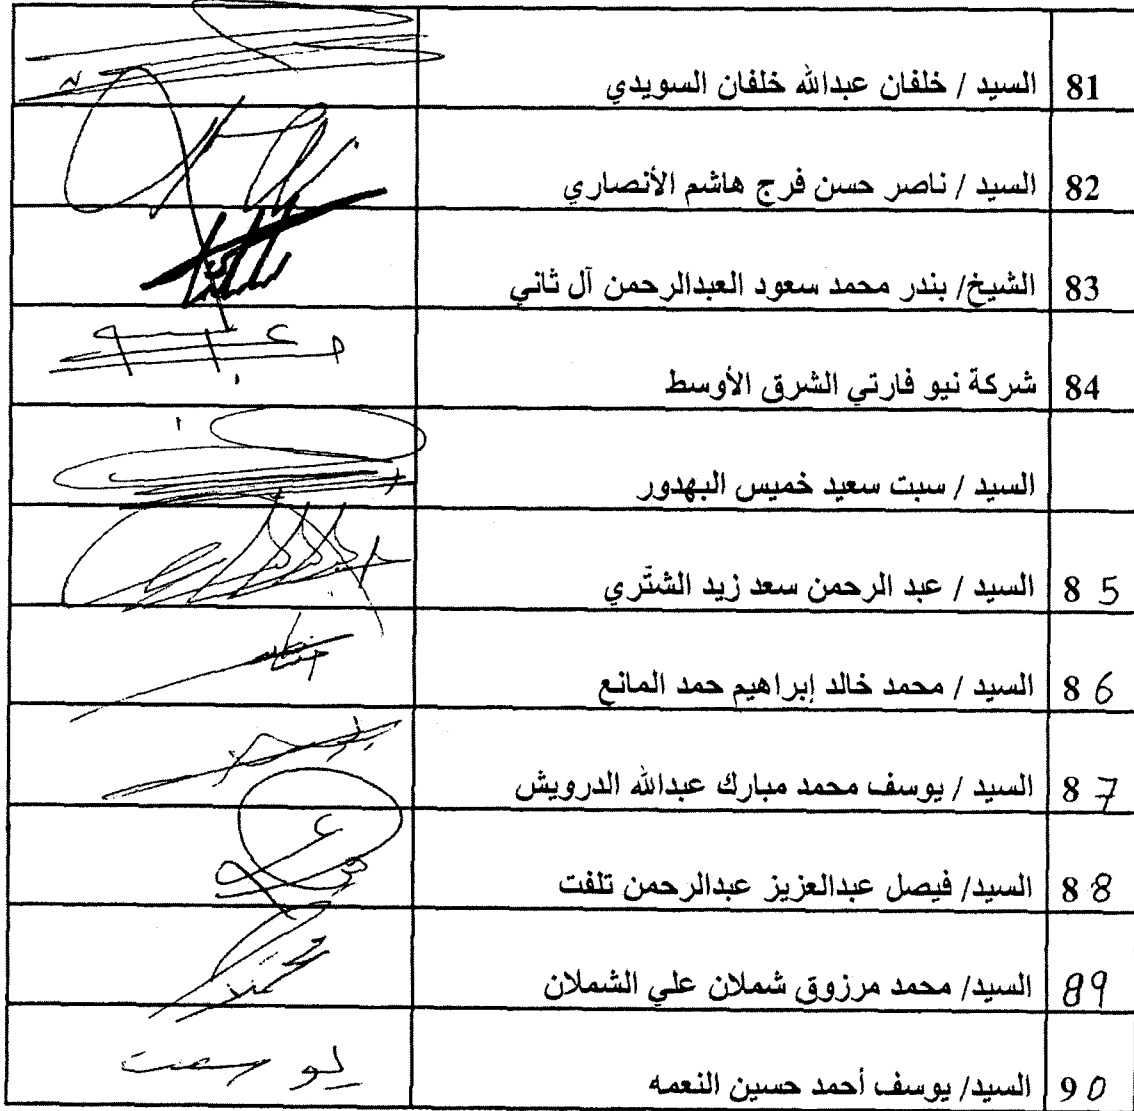 81 السيد / خلفان عبدالله خلفان السويدي
82 السيد / ناصر حسن فرج هاشم الأنصاري
83 الشيخ/ بندر محمد سعود العبدالرحمن آل ثاني
84 شركة نيو فارتي الشرق الأوسط
السيد / سبت سعيد خميس البهدور
85 السيد / عبد الرحمن سعد زيد الشتّري
86 السيد / محمد خالد إبراهيم حمد المانع
87 السيد / يوسف محمد مبارك عبدالله الدرويش
88 السيد/ فيصل عبدالعزيز عبدالرحمن تلفت
89 السيد/ محمد مرزوق شملان علي الشملان
90 السيد/ يوسف أحمد حسين النعمه